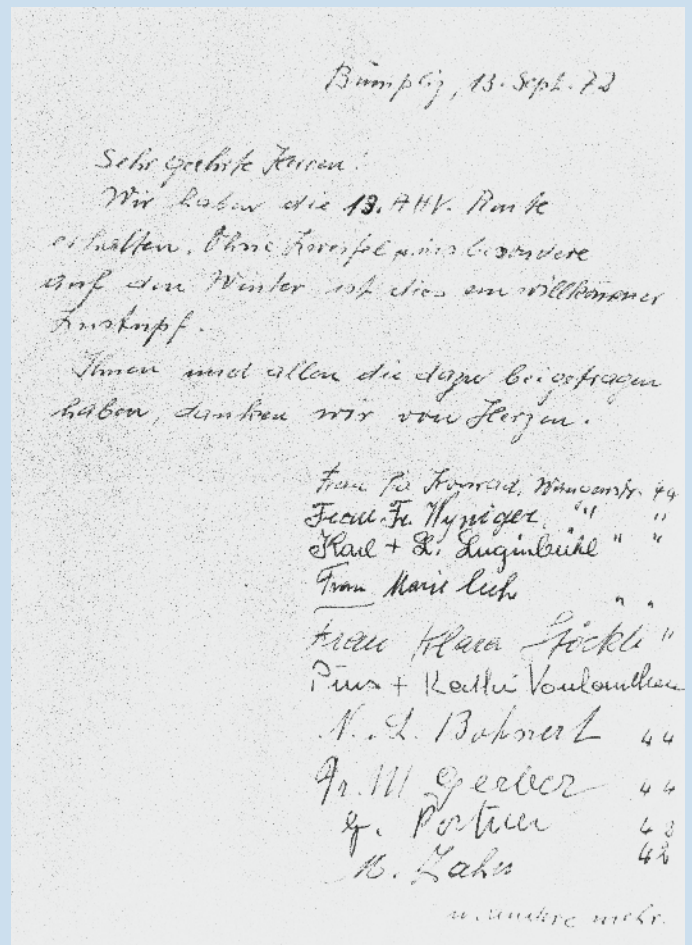 Bümpliz, 13. Sept. 72
Sehr geehrte Herren!
Wir haben die 13. AHV. Rente
erhalten. Ohne Zweifel, insbesondere
auf den Winter ist dies ein willkommener
Zustupf.
Ihnen und allen die dazu beigetragen
haben, danken wir von Herzen.
Frau Konrad, 44
Frau Fr. Wyniger " "
Karl + L. Luginbühl " "
Frau Marie " "
Frau Klara Stöckli "
Pius + Käthi Vonlanthen
N. L. Bohnert 44
Fr. M Gerber 44
G. Portner 43
M. Zahn 42
u. andere mehr.